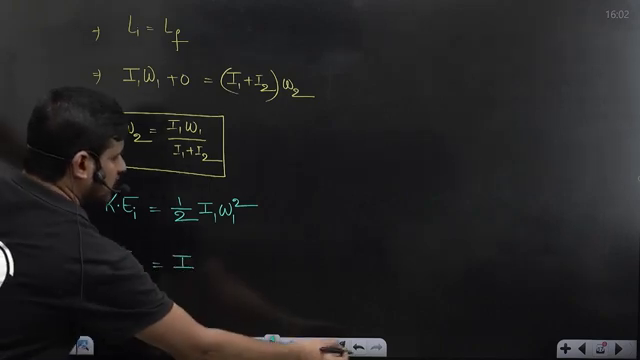 16:02
⇒ Li = Lf
⇒ I₁ω₁ + 0 = (I₁ + I₂) ω₂
ω₂ = I₁ω₁ / I₁ + I₂
K.Eᵢ = 1/2 I₁ω₁²
= I